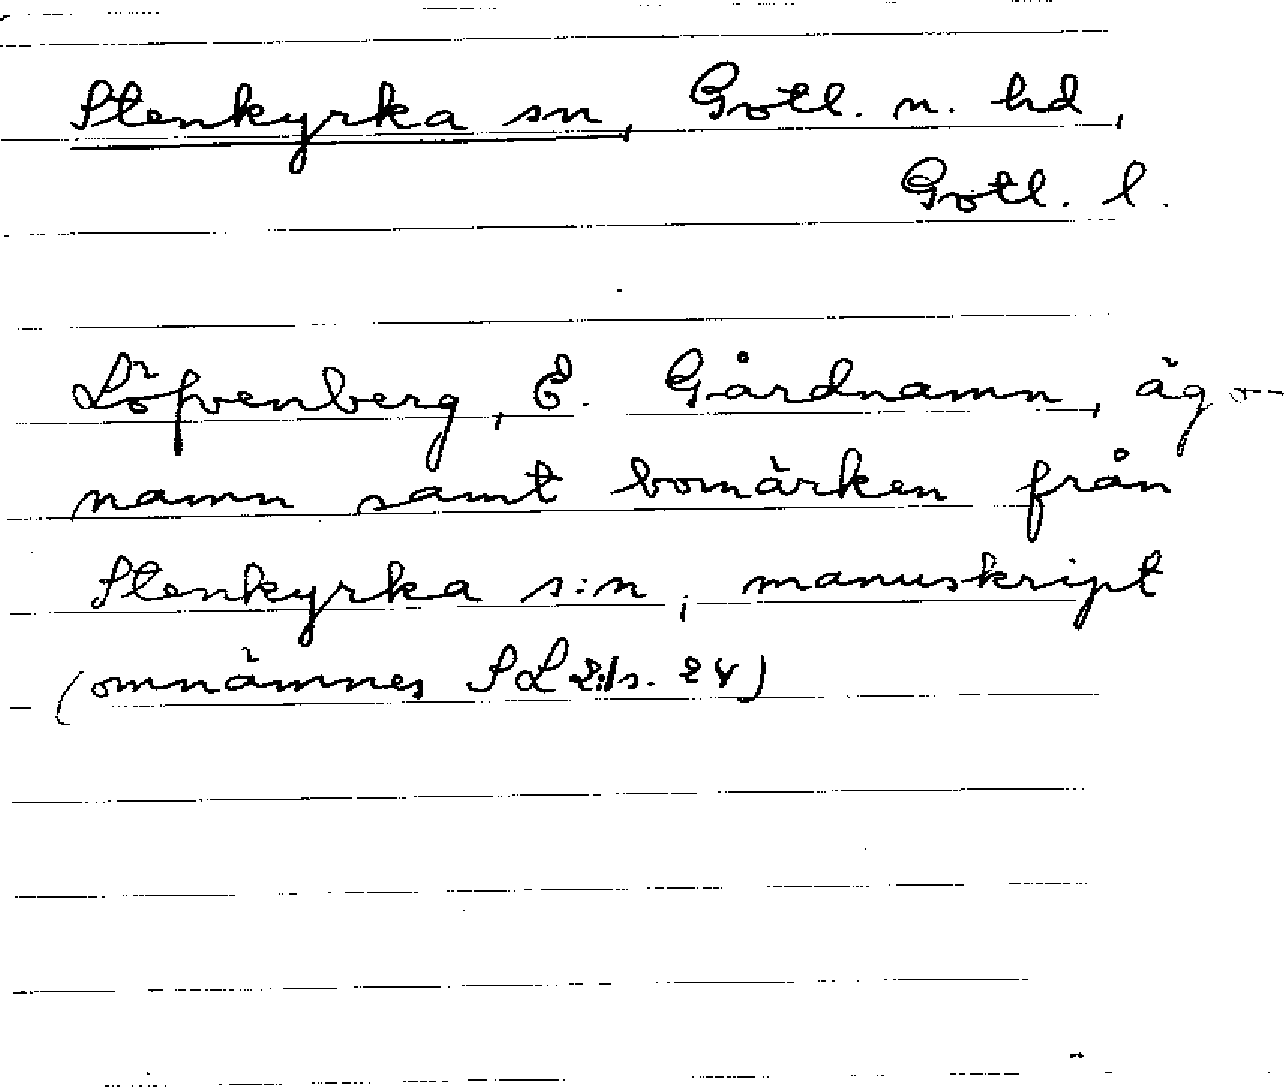 Stenkyrka sn, Gotl. n. hd,
Gotl. l.
Löfvenberg, E. Gårdnamn, ägo-
namn samt bomärken från
Stenkyrka s:n, manuskript
(omnämnes SL 2:1 s. 24)